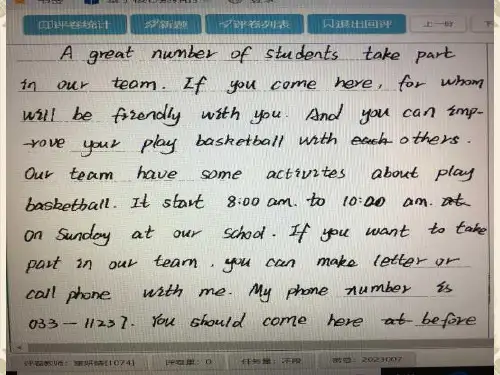 评卷统计 评卷列表 退出回评 上一份
A great number of students take part
in our team. If you come here, for whom
will be friendly with you. And you can imp-
-rove your play basketball with each others.
Our team have some activites about play
basketball. It start 8:00 am. to 10:00 am. at
on Sunday at our school. If you want to take
part in our team, you can make letter or
call phone with me. My phone number is
033-11237. You should come here at before
(1074) 评卷量: 0 任务量: 不限